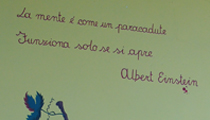 La mente é come un paracadute
Funziona solo se si apre
Albert Einstein